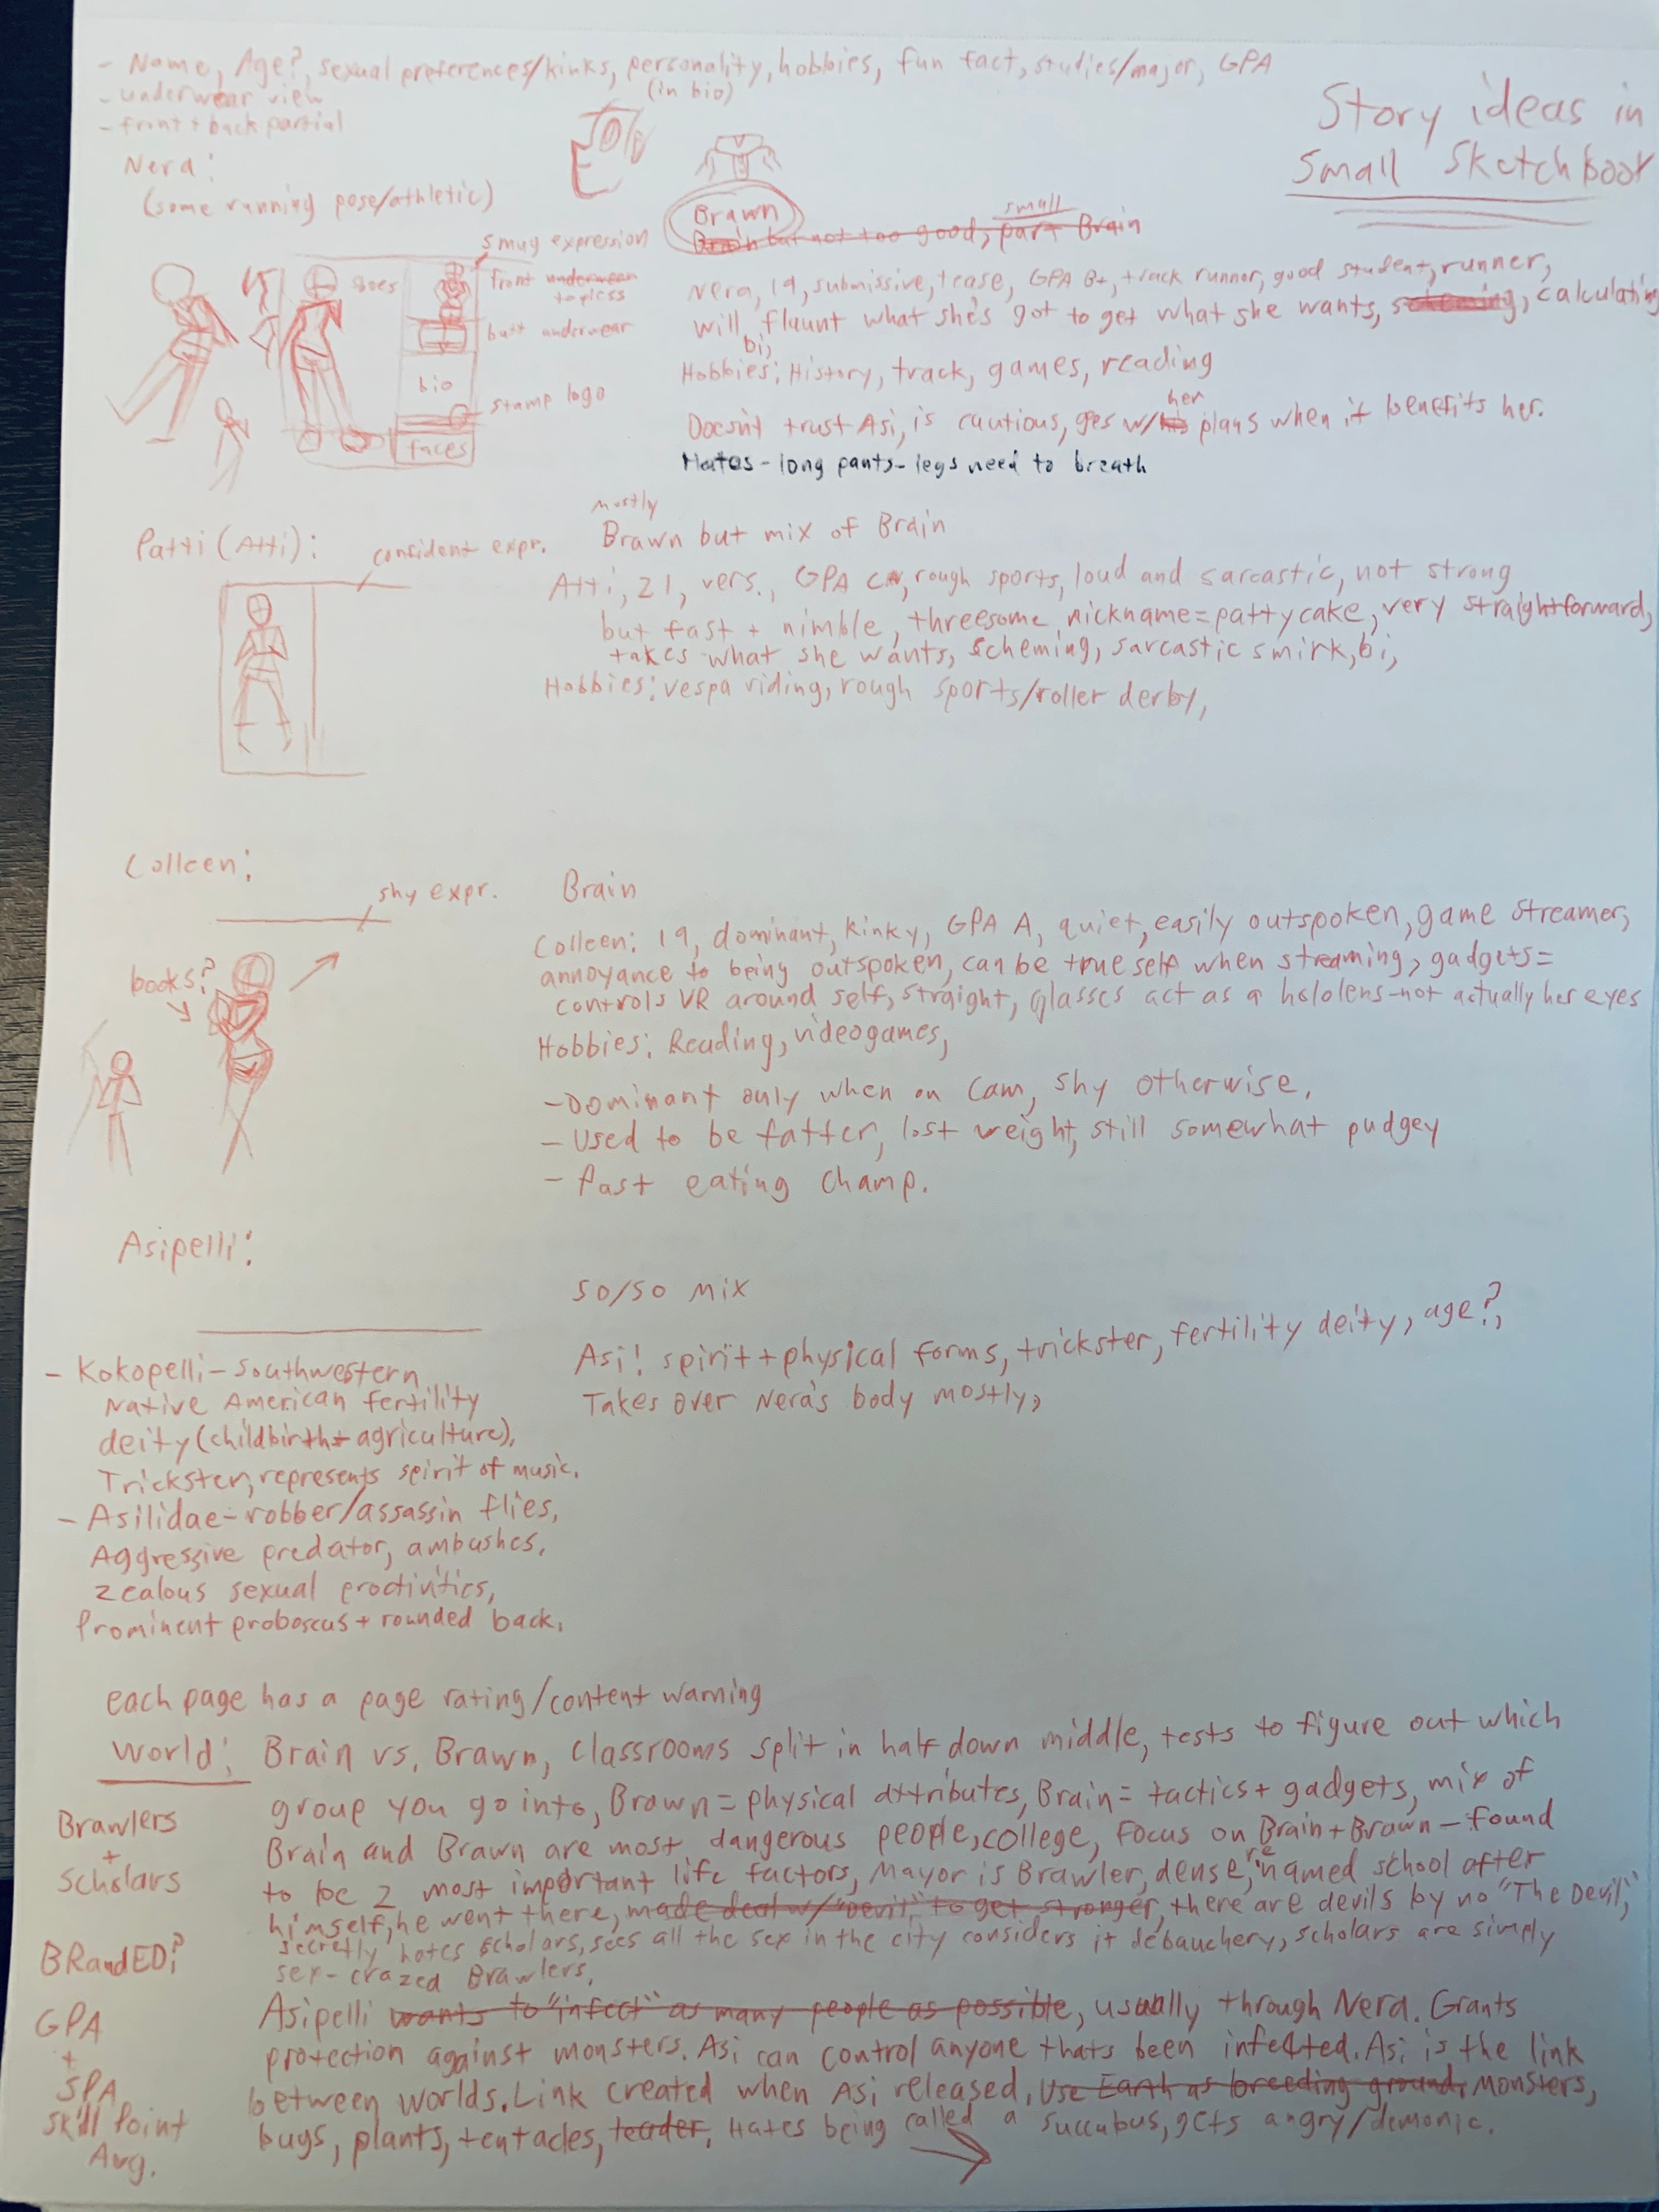 - Name, Age?, sexual preferences/kinks, personality, hobbies, fun fact, studies/major, GPA
(in bio)
- underwear view
- front + back partial
Story ideas in
small sketchbook
Nera:
(some running pose/athletic)
Brawn
small
Brain but not too good, part Brain
smug expression
front underwear
topless
butt underwear
bio
stamp logo
faces
Nera, 19, submissive, tease, GPA B+, track runner, good student, runner,
will flaunt what she's got to get what she wants, scheming, calculating
bi,
Hobbies: History, track, games, reading
her
Doesn't trust Asi, is cautious, goes w/ his plans when it benefits her.
Hates - long pants - legs need to breath
Patti (Atti):
confident expr.
mostly
Brawn but mix of Brain
Atti, 21, vers., GPA C, rough sports, loud and sarcastic, not strong
but fast + nimble, threesome, nickname = pattycake, very straightforward,
takes what she wants, scheming, sarcastic smirk, bi,
Hobbies: vespa riding, rough sports/roller derby,
Colleen:
shy expr.
books?
Brain
Colleen: 19, dominant, kinky, GPA A, quiet, easily outspoken, game streamer,
annoyance to being outspoken, can be true self when streaming, gadgets =
controls VR around self, straight, glasses act as a hololens - not actually her eyes
Hobbies: Reading, videogames,
- Dominant only when on cam, shy otherwise.
- Used to be fatter, lost weight, still somewhat pudgey
- Past eating champ.
Asipelli:
50/50 mix
Asi: spirit + physical forms, trickster, fertility deity, age?,
Takes over Nera's body mostly,
- Kokopelli - Southwestern
Native American fertility
deity (childbirth + agriculture),
Trickster, represents spirit of music.
- Asilidae - robber/assassin flies,
Aggressive predator, ambushes,
zealous sexual proctivities,
Prominent proboscus + rounded back.
each page has a page rating/content warning
World: Brain vs. Brawn, classrooms split in half down middle, tests to figure out which
group you go into, Brawn = physical attributes, Brain = tactics + gadgets, mix of
Brain and Brawn are most dangerous people, college, Focus on Brain + Brawn - found
to be 2 most important life factors, Mayor is Brawler, dense, renamed school after
himself, he went there, made deal w/ "Devil" to get stronger, there are devils by no "The Devil",
secretly hates scholars, sees all the sex in the city considers it debauchery, scholars are simply
sex-crazed Brawlers.
Brawlers
+
Scholars
BRandED?
GPA
+
SPA
Skill Point
Avg.
Asipelli wants to "infect" as many people as possible, usually through Nera. Grants
protection against monsters. Asi can control anyone thats been infected. Asi is the link
between worlds. Link created when Asi released. Use Earth as breeding ground. Monsters,
bugs, plants, tentacles, leader. Hates being called a succubus, gets angry/demonic.